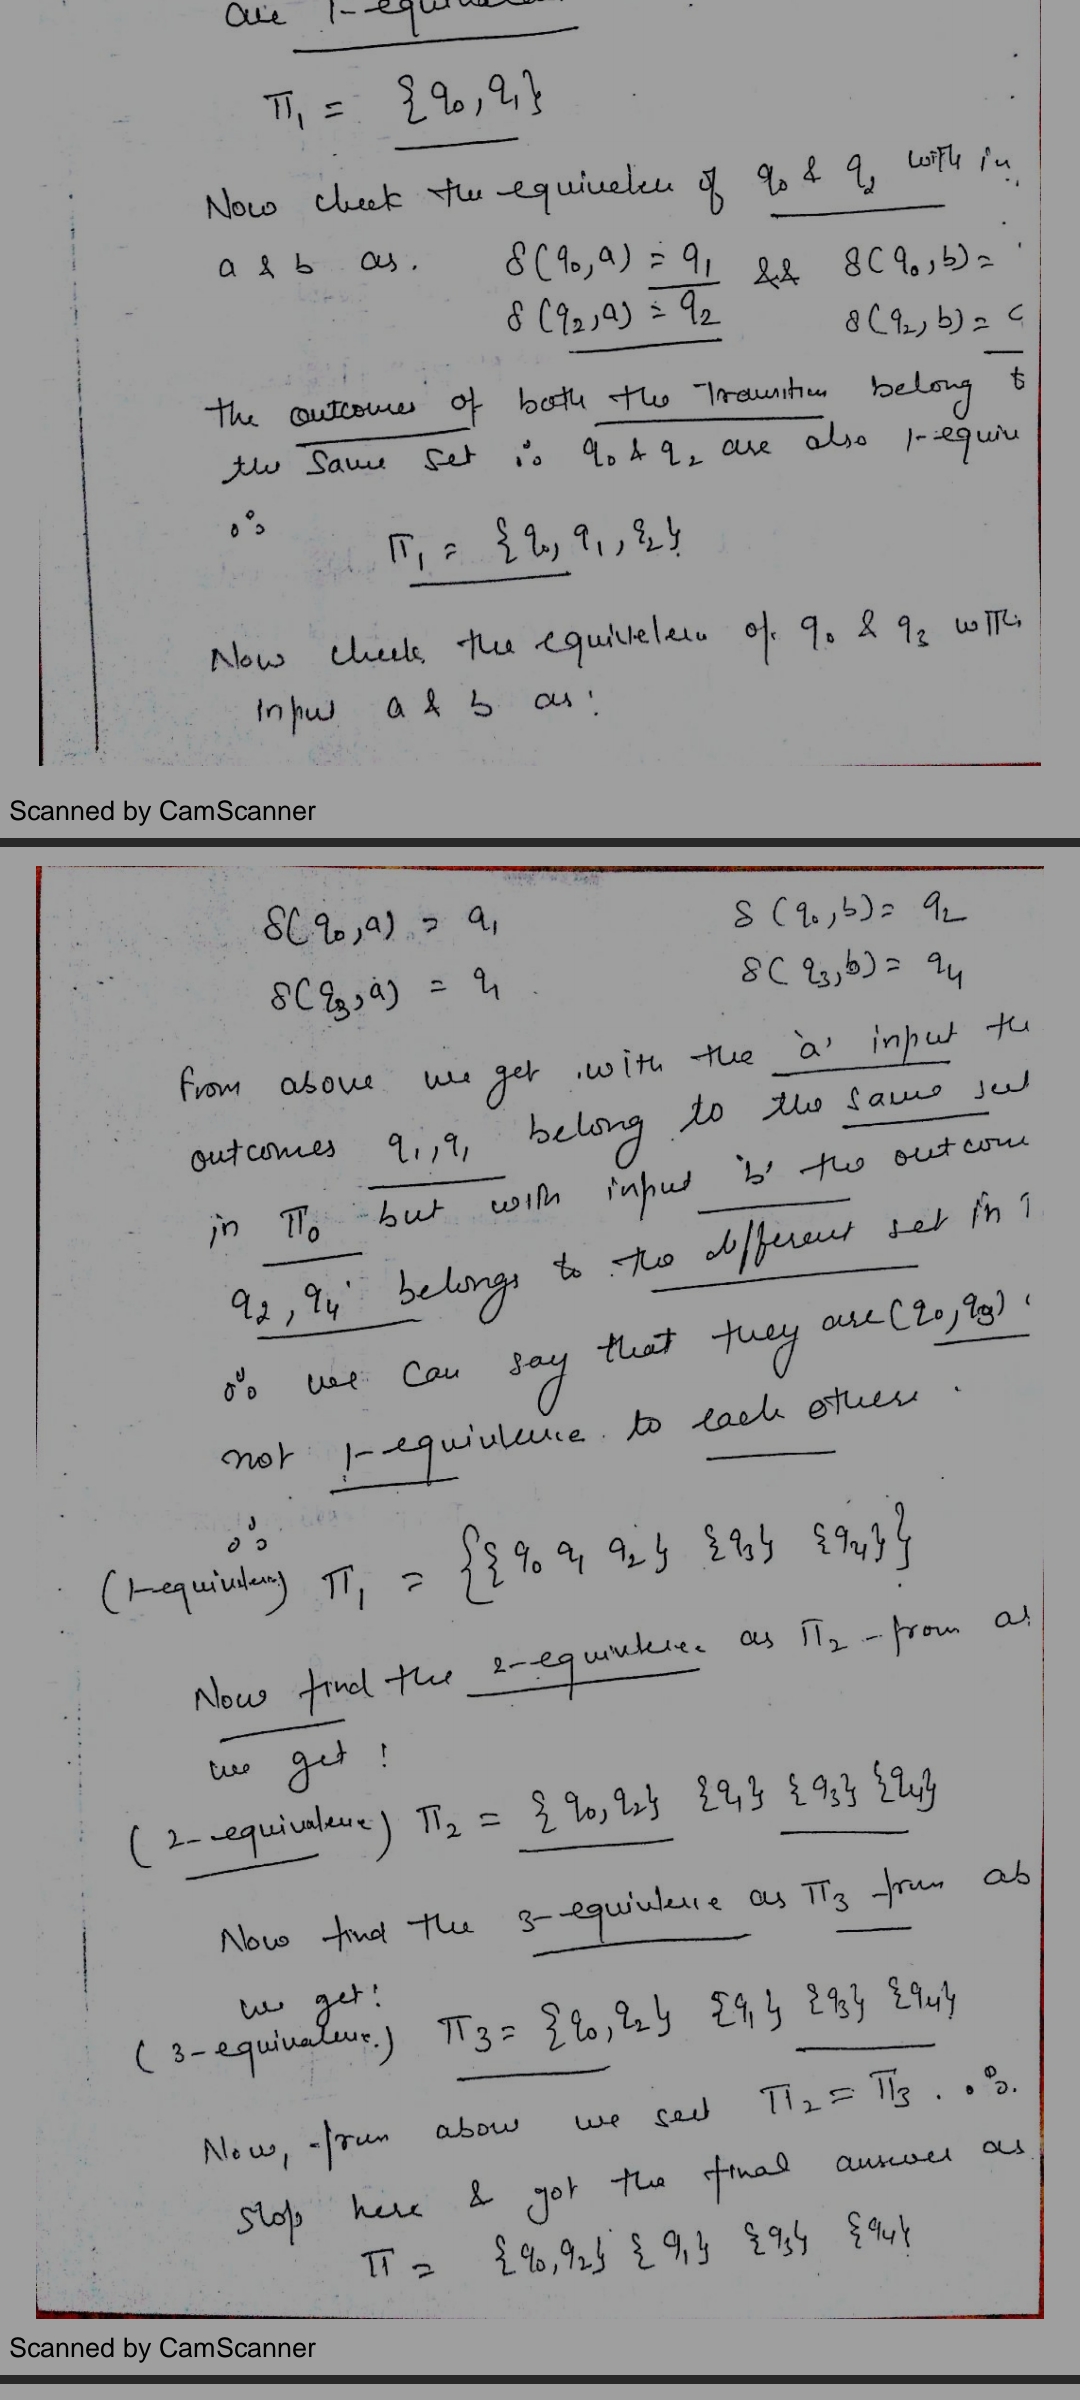 are 1-equivalen
Π₁ = {q₀, q₁}
Now check the equivelen of q₀ & q₂ with in
a & b as. δ(q₀,a) = q₁ && δ(q₀,b) =
δ(q₂,a) = q₂ δ(q₂,b) =
the outcomes of both the Transition belong t
the same set ∴ q₀ & q₂ are also 1-equiv
∴
Π₁ = {q₀, q₁, q₂}
Now check the equivelen of q₀ & q₃ with
input a & b as:
Scanned by CamScanner
δ(q₀,a) = q₁ δ(q₀,b) = q₂
δ(q₃,a) = q₁ δ(q₃,b) = q₄
from above we get with the 'a' input the
outcomes q₁, q₁ belong to the same set
in Π₀ but with input 'b' the outcome
q₂, q₄ belongs to the different set in
∴ we can say that they are (q₀, q₃)
not 1-equivlence to each others.
∴
(1-equivlence) Π₁ = {{q₀ q₁ q₂} {q₃} {q₄}}
Now find the 2-equivlence as Π₂ from ab
we get!
(2-equivalence) Π₂ = {q₀, q₂} {q₁} {q₃} {q₄}
Now find the 3-equivlence as Π₃ from ab
we get!
(3-equivalence.) Π₃ = {q₀, q₂} {q₁} {q₃} {q₄}
Now, from above we seet Π₂ = Π₃. ∴
stop here & got the final answer as
Π = {q₀, q₂} {q₁} {q₃} {q₄}
Scanned by CamScanner